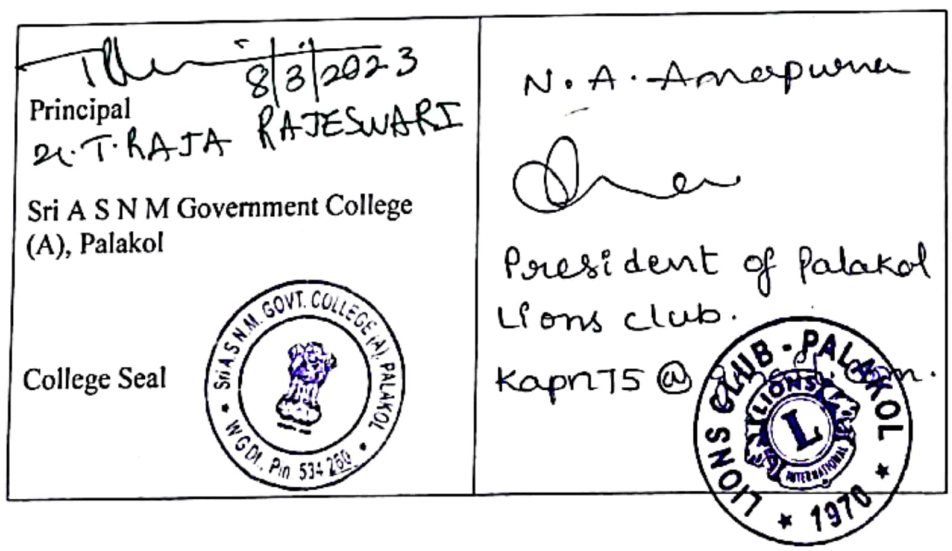 8/3/2023
Principal
Dr. T. RAJA RAJESWARI
Sri A S N M Government College
(A), Palakol
College Seal
Sri A.S.N.M. GOVT. COLLEGE (A), PALAKOL
* W G Dt. Pin 534 260 *
N. A. Annapurna
President of Palakol
Lions club.
Kapn75 @
LIONS CLUB - PALAKOL
LIONS
L
INTERNATIONAL
* 1970 *